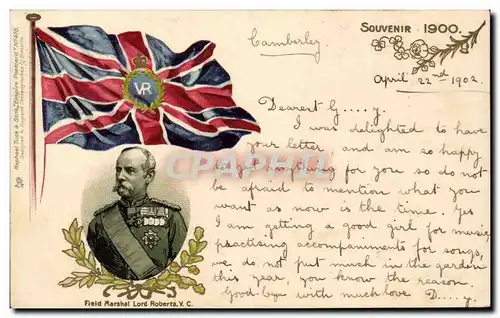 Raphael Tuck & Sons' "Empire" Postcard
SOUVENIR 1900.
Camberley
April 22nd 1902.
VR
Dearest G....y.
I was delighted to have
your letter and am so happy
I for you so do not
be afraid to mention what you
want as now is the time. Yes
I am getting a good girl for music,
practising accompaniments for songs,
we do not put much in the garden
this year, you know the reason.
Good-bye with much love D....y.
Field Marshal Lord Roberts. V. C.
CPARAMA